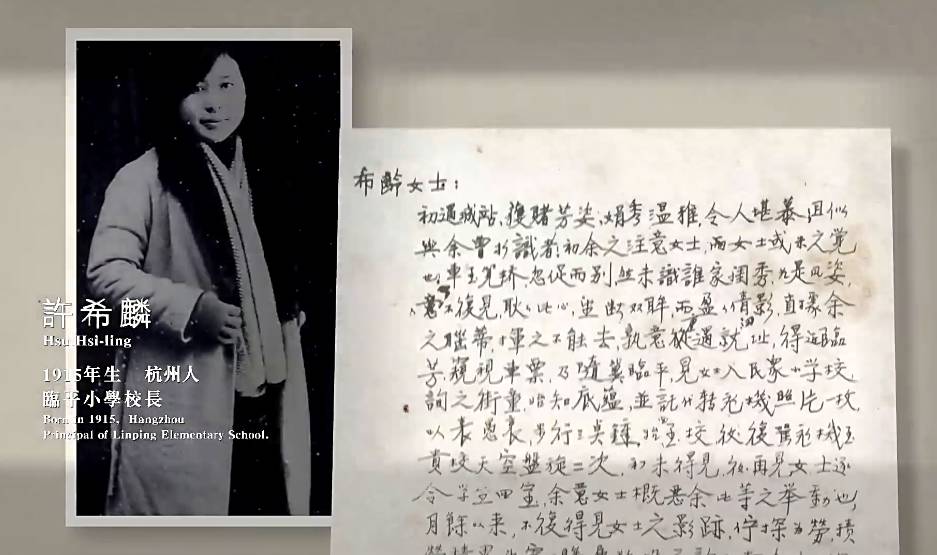 許希麟
Hsu Hsi-ling
1915年生 杭州人
臨平小學校長
Born in 1915, Hangzhou
Principal of Linping Elementary School.
布齡女士：
初遇城站，復睹芳姿，娟秀温雅令人堪慕，且似
與余曽相識者，初余之注意女士，而女士或未之覚
也，車至笕桥，忽促而别，然未識誰家闺秀，如是风姿，
意不復見，耿耿此心，望断双眸，而盈盈倩影，直環余
之腦蒂，揮之不能去，孰意放遇説址，得近臨
芳，窺視車票，乃隨冀臨平，見女士入民眾小学校
詢之街童，始知底蕴，並託代转飛機照片一枚，
以表愚衷，步行三英鐘，始至校，後復駕飛機至
貴校天空盤旋二次，初未得見，後再見女士逐
令学生回室，余意女士概悉余此等之举動也，
月餘以来，不復得見女士之影跡，佇探为勞，積